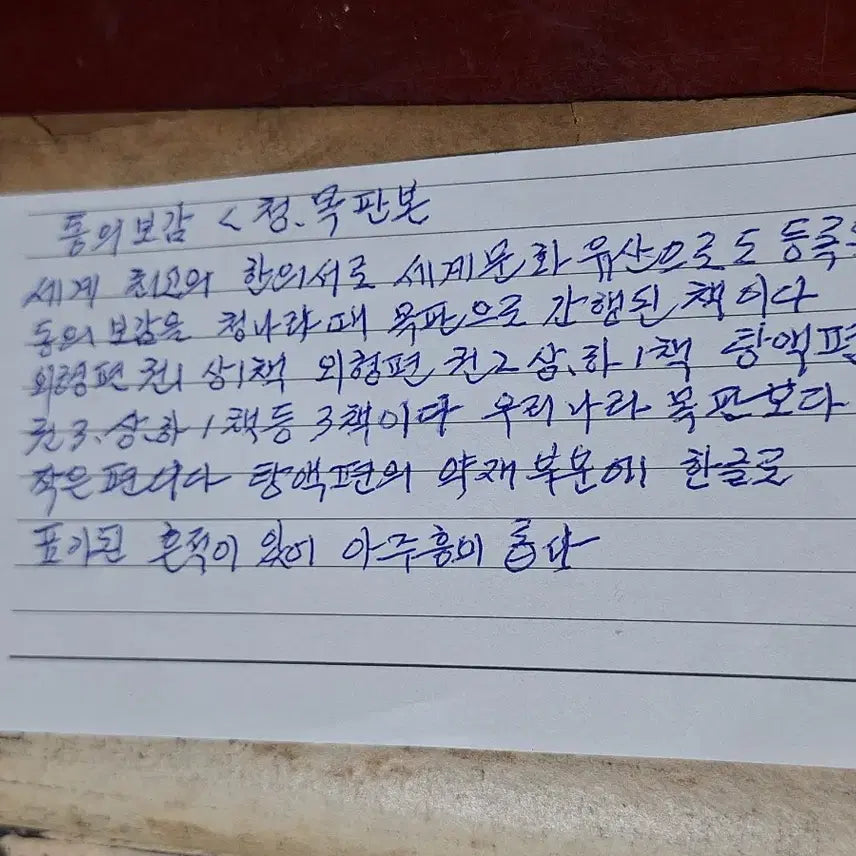 동의보감 < 청.목판본
세계 최고의 한의서로 세계문화유산으로도 등록
동의보감을 청나라때 목판으로 간행된 책이다
외형편 권1 상1책 외형편 권2 상.하 1책 탕액편
권3.상.하 1책등 3책이다 우리나라 목판보다
작은편이다 탕액편의 약재부문에 한글로
표기된 흔적이 있어 아주흥미롭다